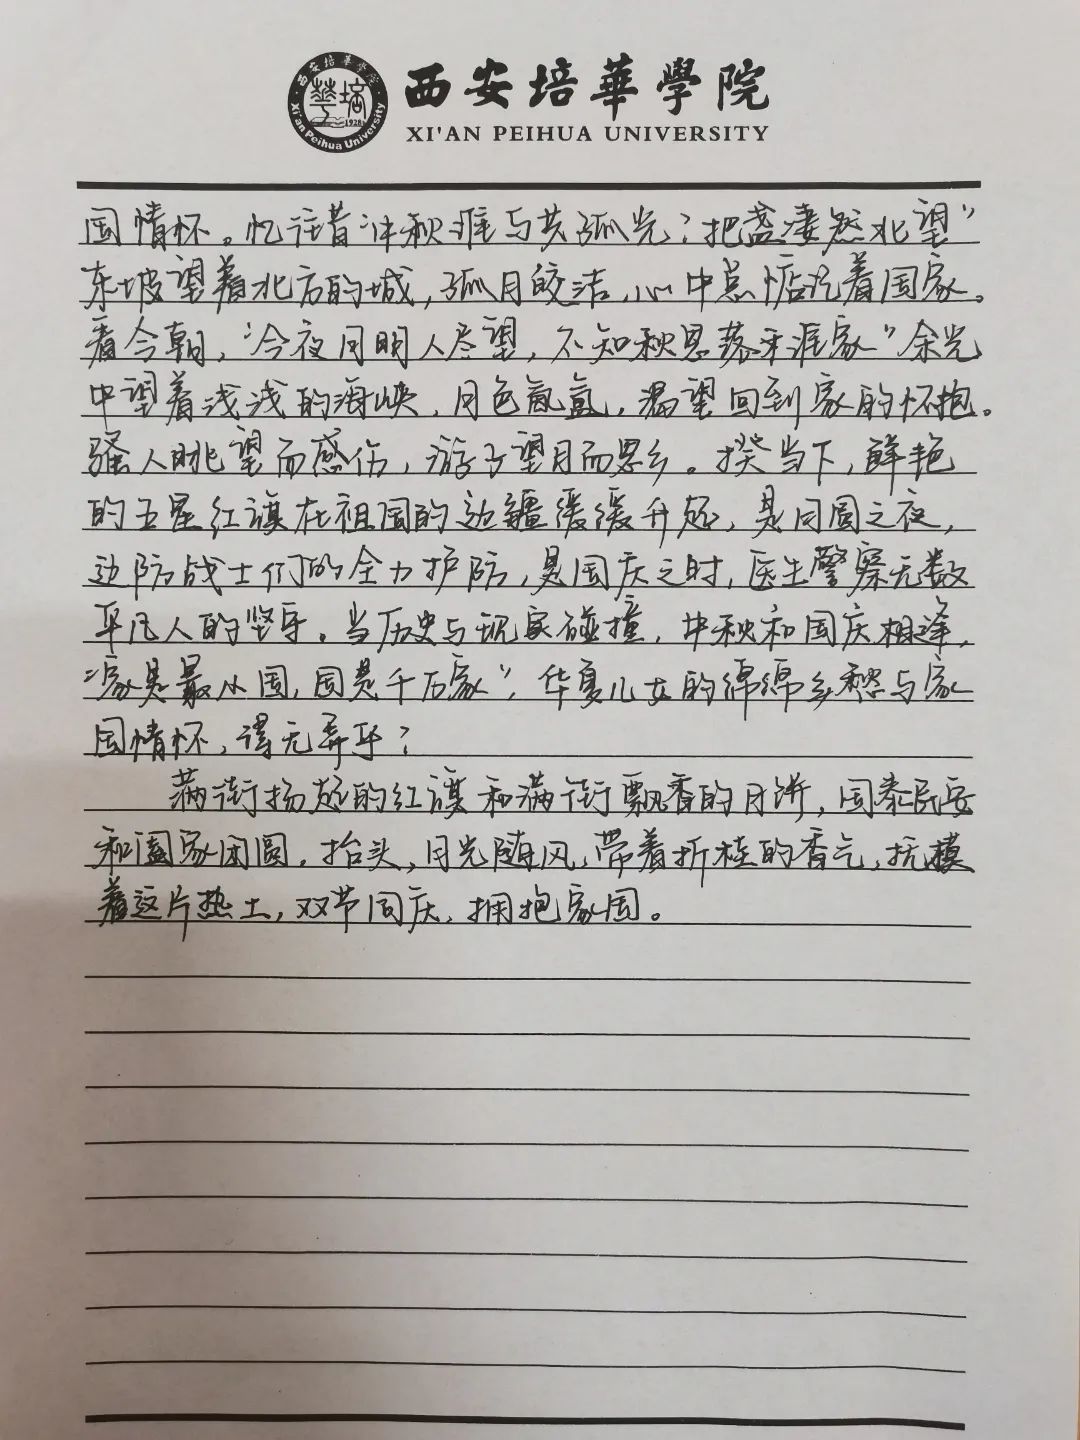 西安培華學院
XI'AN PEIHUA UNIVERSITY
西安培華學院
XI'an Peihua University
1928
国情怀。忆往昔“中秋谁与共孤光？把盏凄然北望”
东坡望着北方的城，孤月皎洁，心中总惦记着国家。
看今朝，“今夜月明人尽望，不知秋思落谁家”余光
中望着浅浅的海峡，月色氤氲，渴望回到家的怀抱。
骚人眺望而感伤，游子望月而思乡。揆当下，鲜艳
的五星红旗在祖国的边疆缓缓升起，是月圆之夜，
边防战士们的全力护防，是国庆之时，医生警察无数
平凡人的坚守。当历史与现实碰撞，中秋和国庆相逢，
“家是最小国，国是千万家”，华夏儿女的绵绵乡愁与家
国情怀，谓无弄乎？
满街扬起的红旗和满街飘香的月饼，国泰民安
和阖家团圆。抬头，月光随风，带着折桂的香气，抚摸
着这片热土，双节同庆，拥抱家国。